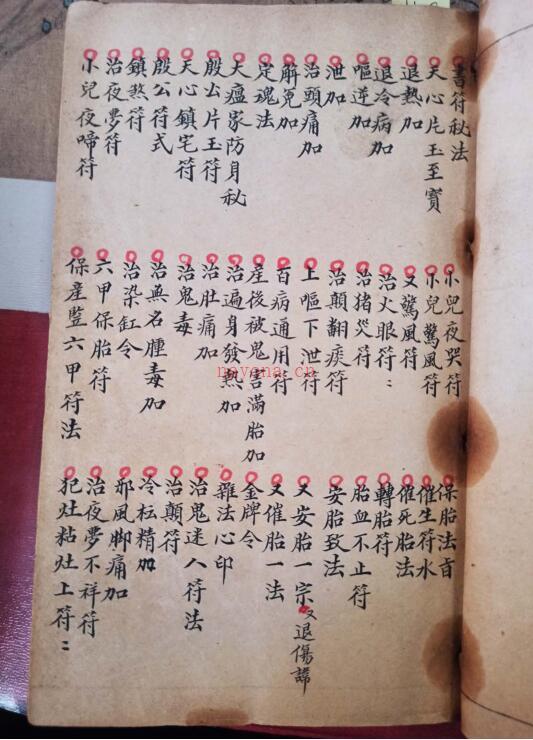 書符秘法
天心片玉至寶
退熱加
退冷病加
嘔逆加
泄加
治頭痛加
解冤加
定魂法
大瘟家防身秘
殷公片玉符
天心鎮宅符
殷公符式
鎮煞符
治夜夢符
小兒夜啼符
小兒夜哭符
小兒驚風符
又驚風符
治火眼符：
治猪災符
治顛翻痰符
上嘔下泄符
百病通用符
産後被鬼害滿胎加
治遍身發熱加
治肚痛加
治鬼毒
治無名腫毒加
治染缸令
六甲保胎符
保産監六甲符法
保胎法旨
催生符水
催死胎法
轉胎符
胎血不止符
安胎致法
又安胎一宗又退傷諱
又催胎一法
金牌令
雜法心印
治鬼迷人符法
治顛符
冷枟精加
邪風脚痛加
治夜夢不祥符
犯灶粘灶上符：
nayona.cn